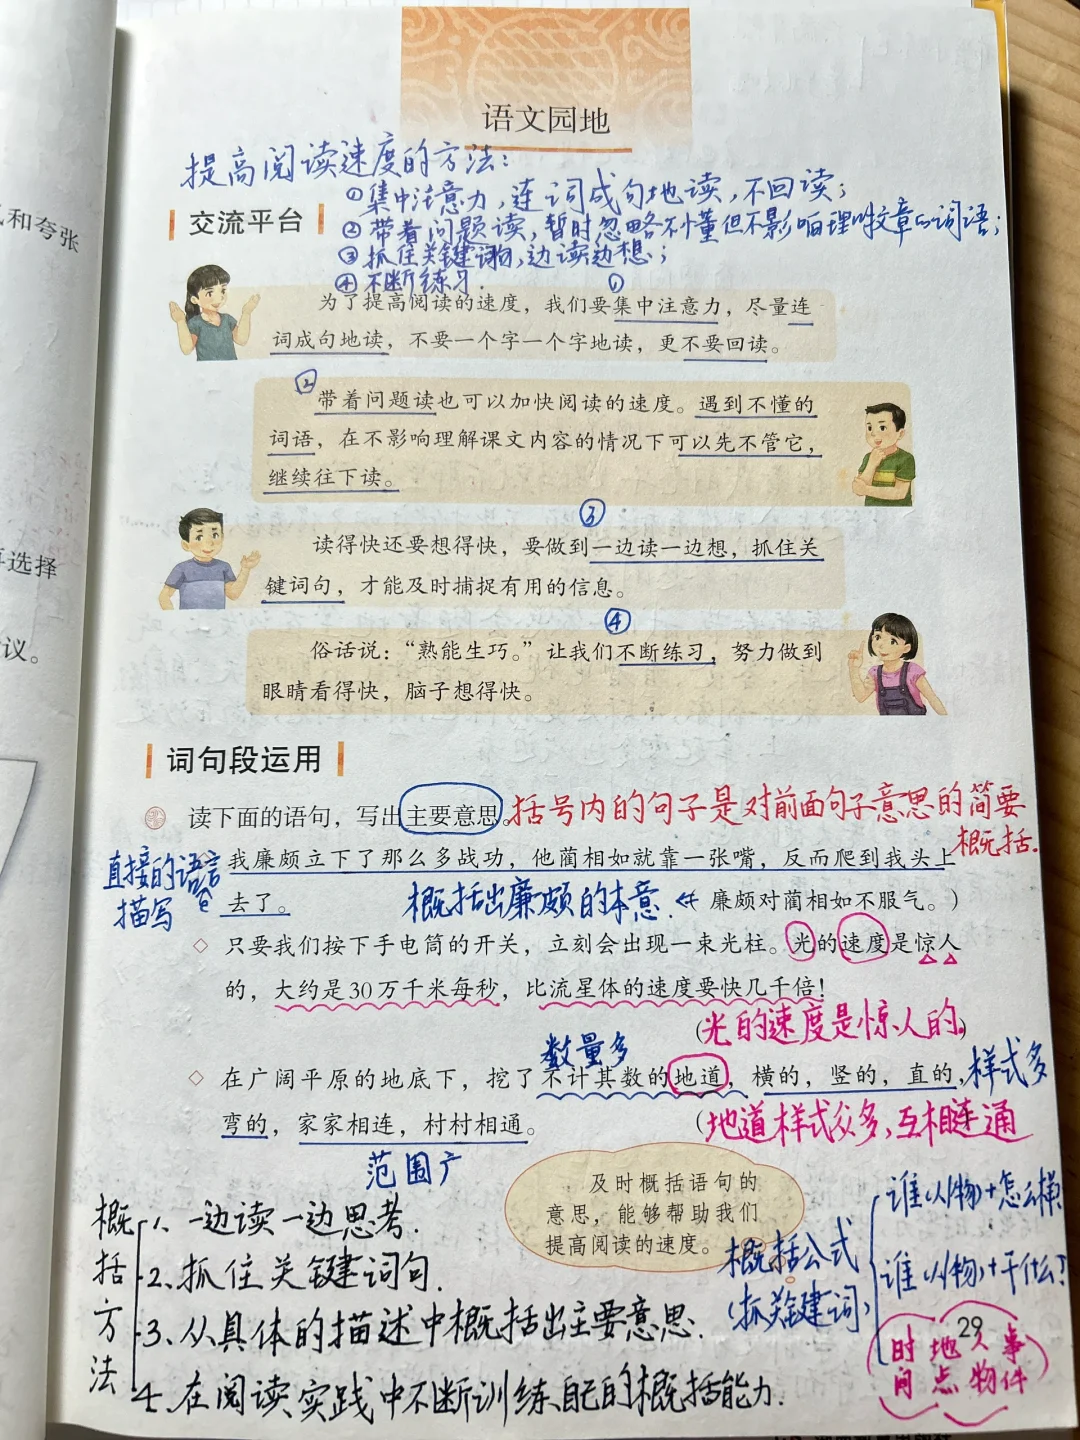 语文园地
提高阅读速度的方法：
①集中注意力，连词成句地读，不回读；
交流平台
②带着问题读，暂时忽略不懂但不影响理解文章的词语；
③抓住关键词句，边读边想；
④不断练习.
①
为了提高阅读的速度，我们要集中注意力，尽量连
词成句地读，不要一个字一个字地读，更不要回读。
②
带着问题读也可以加快阅读的速度。遇到不懂的
词语，在不影响理解课文内容的情况下可以先不管它，
继续往下读。
③
读得快还要想得快，要做到一边读一边想，抓住关
键词句，才能及时捕捉有用的信息。
④
俗话说：“熟能生巧。”让我们不断练习，努力做到
眼睛看得快，脑子想得快。
词句段运用
读下面的语句，写出主要意思。
括号内的句子是对前面句子意思的简要
概括.
直接的语言
描写
我廉颇立下了那么多战功，他蔺相如就靠一张嘴，反而爬到我头上
去了。
概括出廉颇的本意.
廉颇对蔺相如不服气。）
◇ 只要我们按下手电筒的开关，立刻会出现一束光柱。光的速度是惊人
的，大约是30万千米每秒，比流星体的速度要快几千倍！
（光的速度是惊人的。）
数量多
◇ 在广阔平原的地底下，挖了不计其数的地道，横的，竖的，直的，
样式多
弯的，家家相连，村村相通。
（地道样式众多，互相连通
范围广
及时概括语句的
意思，能够帮助我们
提高阅读的速度。
概括方法
1、一边读一边思考.
2、抓住关键词句.
3、从具体的描述中概括出主要意思.
4、在阅读实践中不断训练自己的概括能力.
概括公式
（抓关键词）
谁（人/物）+怎么样
谁（人/物）+干什么？
29
时间 地点 人物 事件
和夸张
选择
议。